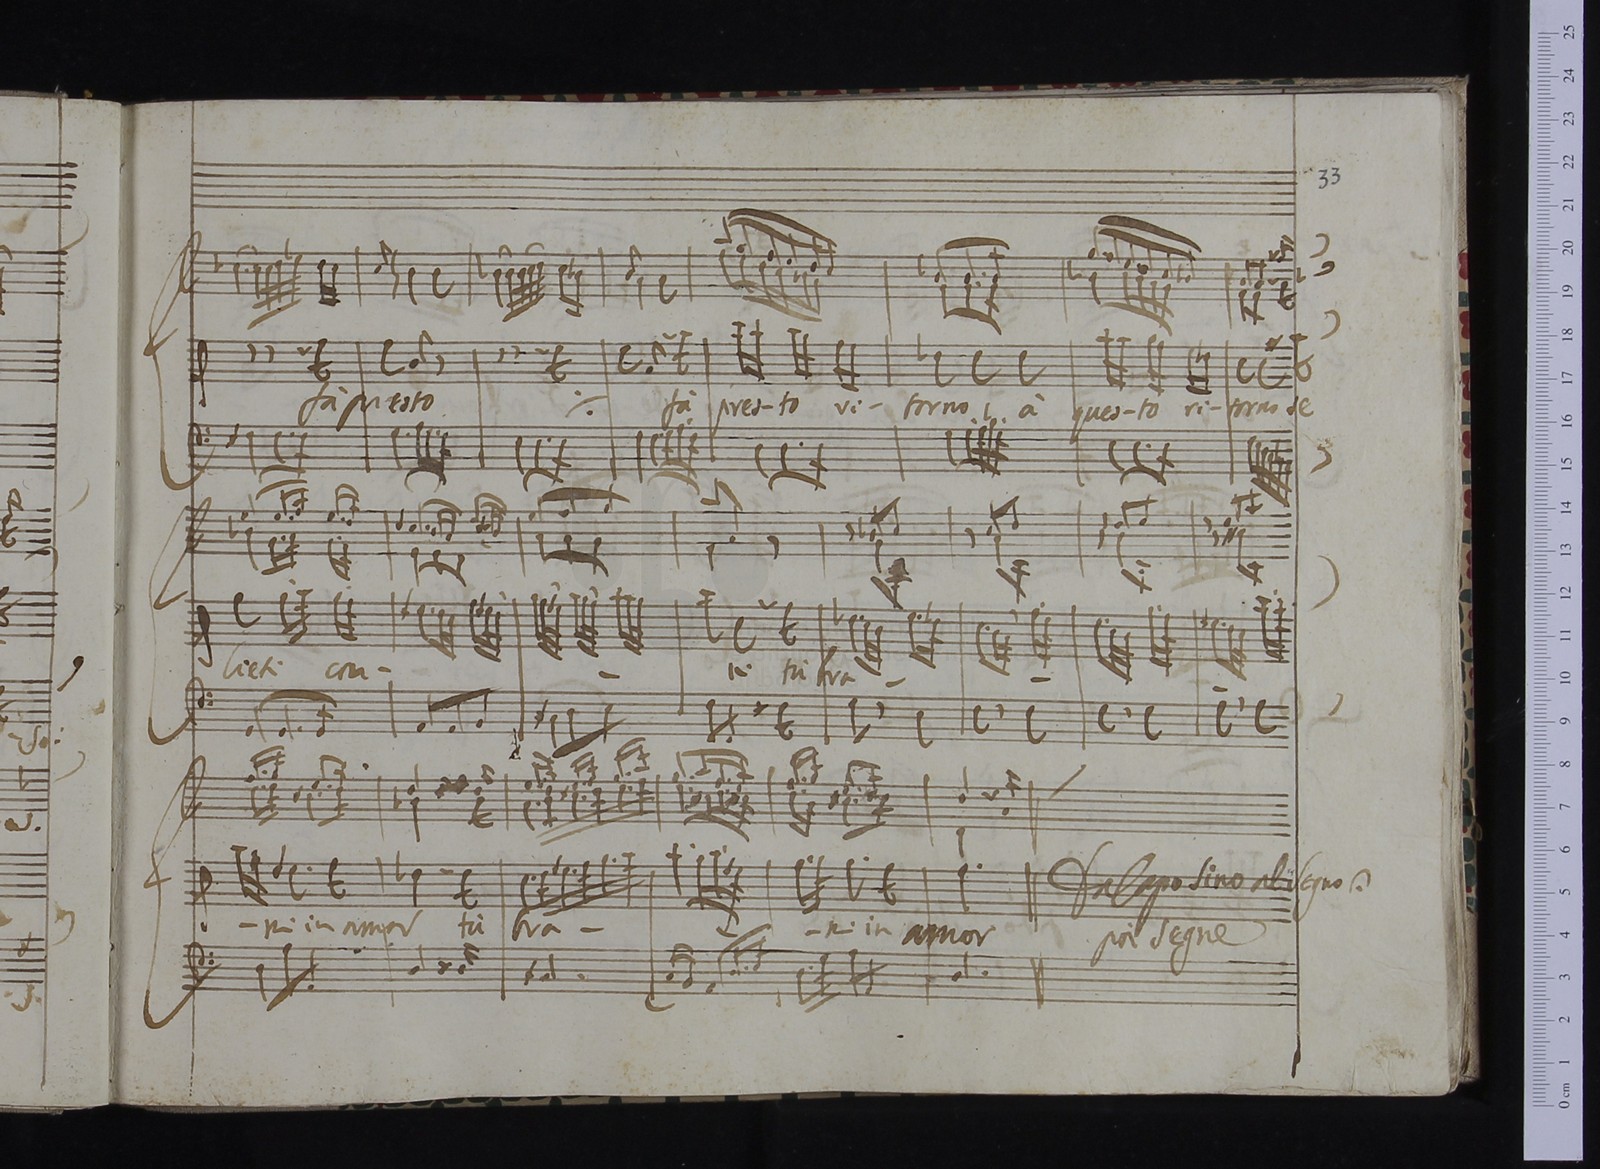 33
fà presto fà pres-to ri-torno, à ques-to ri-torno se
lieti con- - - ti tù bra - -
-mi in amor tù bra - - -mi in amor
Dal Capo sino al Segno
poi segue
0 cm 1 2 3 4 5 6 7 8 9 10 11 12 13 14 15 16 17 18 19 20 21 22 23 24 25